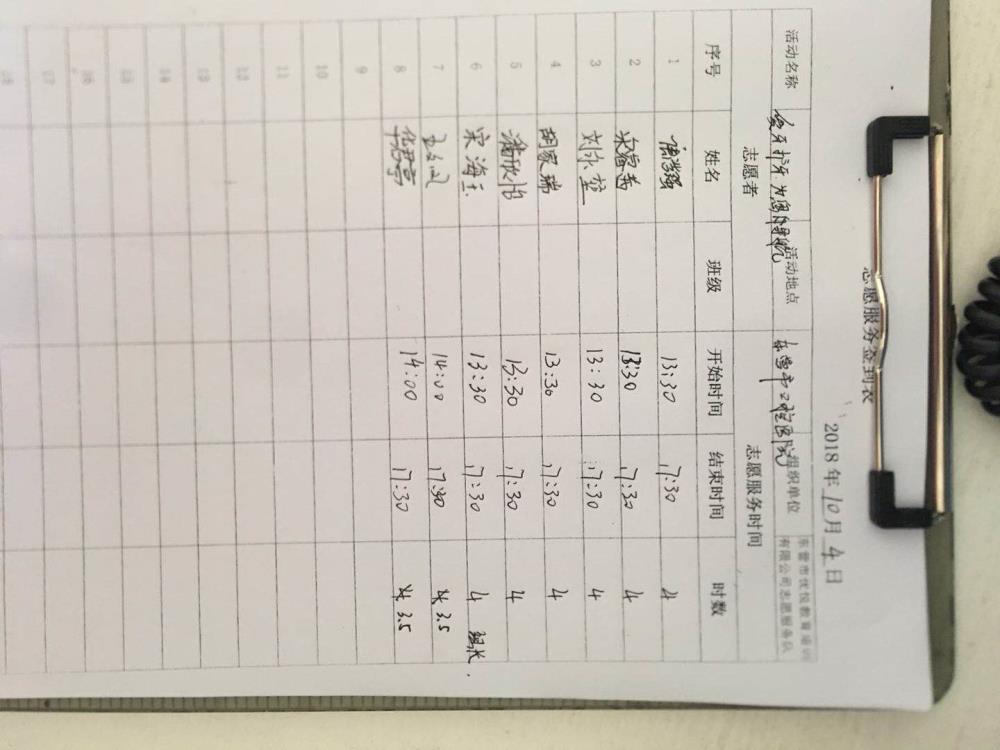 志愿服务签到表
2018年10月4日
活动名称 爱牙护牙 活动地点 东营市口腔医院 组织单位 东营市优悦教育培训有限公司志愿服务队
志愿者 志愿服务时间
序号 姓名 班级 开始时间 结束时间 时数
1 13:30 17:30 4
2 13:30 17:30 4
3 刘永堃 13:30 17:30 4
4 胡家瑞 13:30 17:30 4
5 潘欣怡 13:30 17:30 4
6 宋海玉 13:30 17:30 4 组长
7 14:00 17:30 3.5
8 14:00 17:30 3.5
9
10
11
12
13
14
15
16
17
18